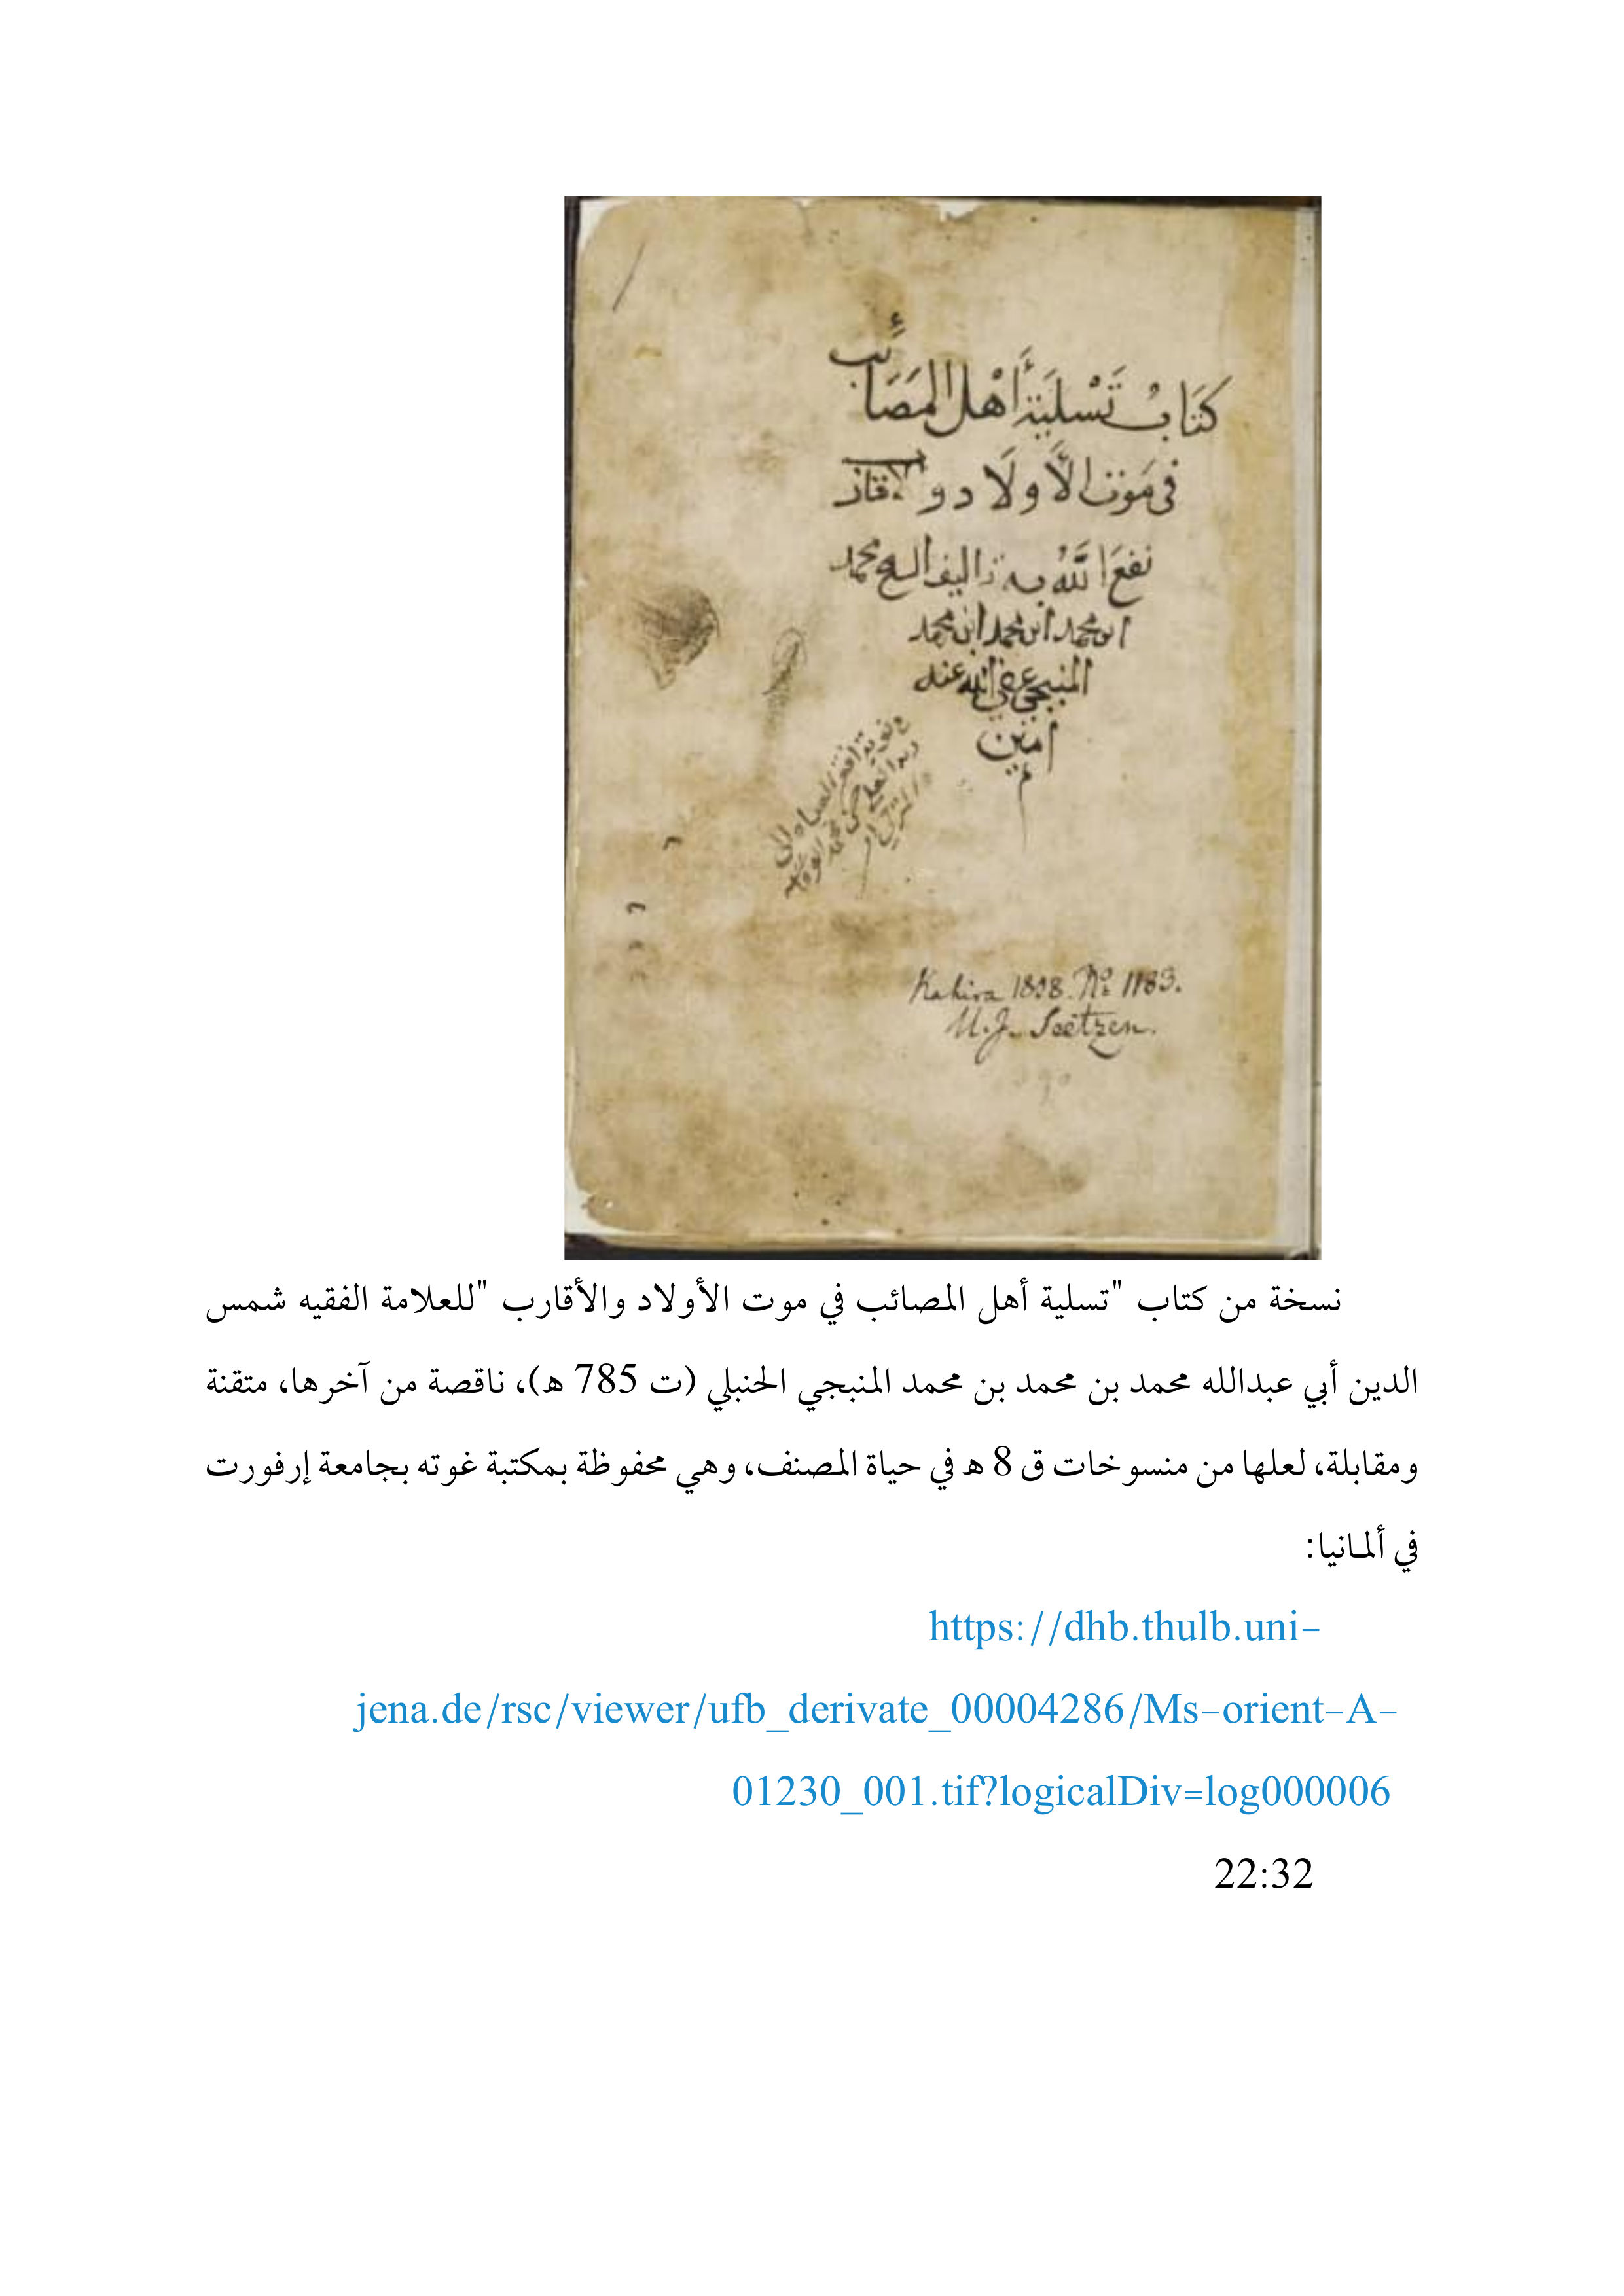 كتاب تسلية أهل المصائب
في موت الأولاد و
نفع الله به تاليف محمد
ابن محمد ابن محمد ابن محمد
المنبجي عفي الله عنه
امين
Kahira 1808. No 1183.
U.J. Seetzen.
نسخة من كتاب "تسلية أهل المصائب في موت الأولاد والأقارب "للعلامة الفقيه شمس
الدين أبي عبدالله محمد بن محمد بن محمد المنبجي الحنبلي (ت 785 ه)، ناقصة من آخرها، متقنة
ومقابلة، لعلها من منسوخات ق 8 ه في حياة المصنف، وهي محفوظة بمكتبة غوته بجامعة إرفورت
في ألمانيا:
https://dhb.thulb.uni-
jena.de/rsc/viewer/ufb_derivate_00004286/Ms-orient-A-
01230_001.tif?logicalDiv=log000006
22:32